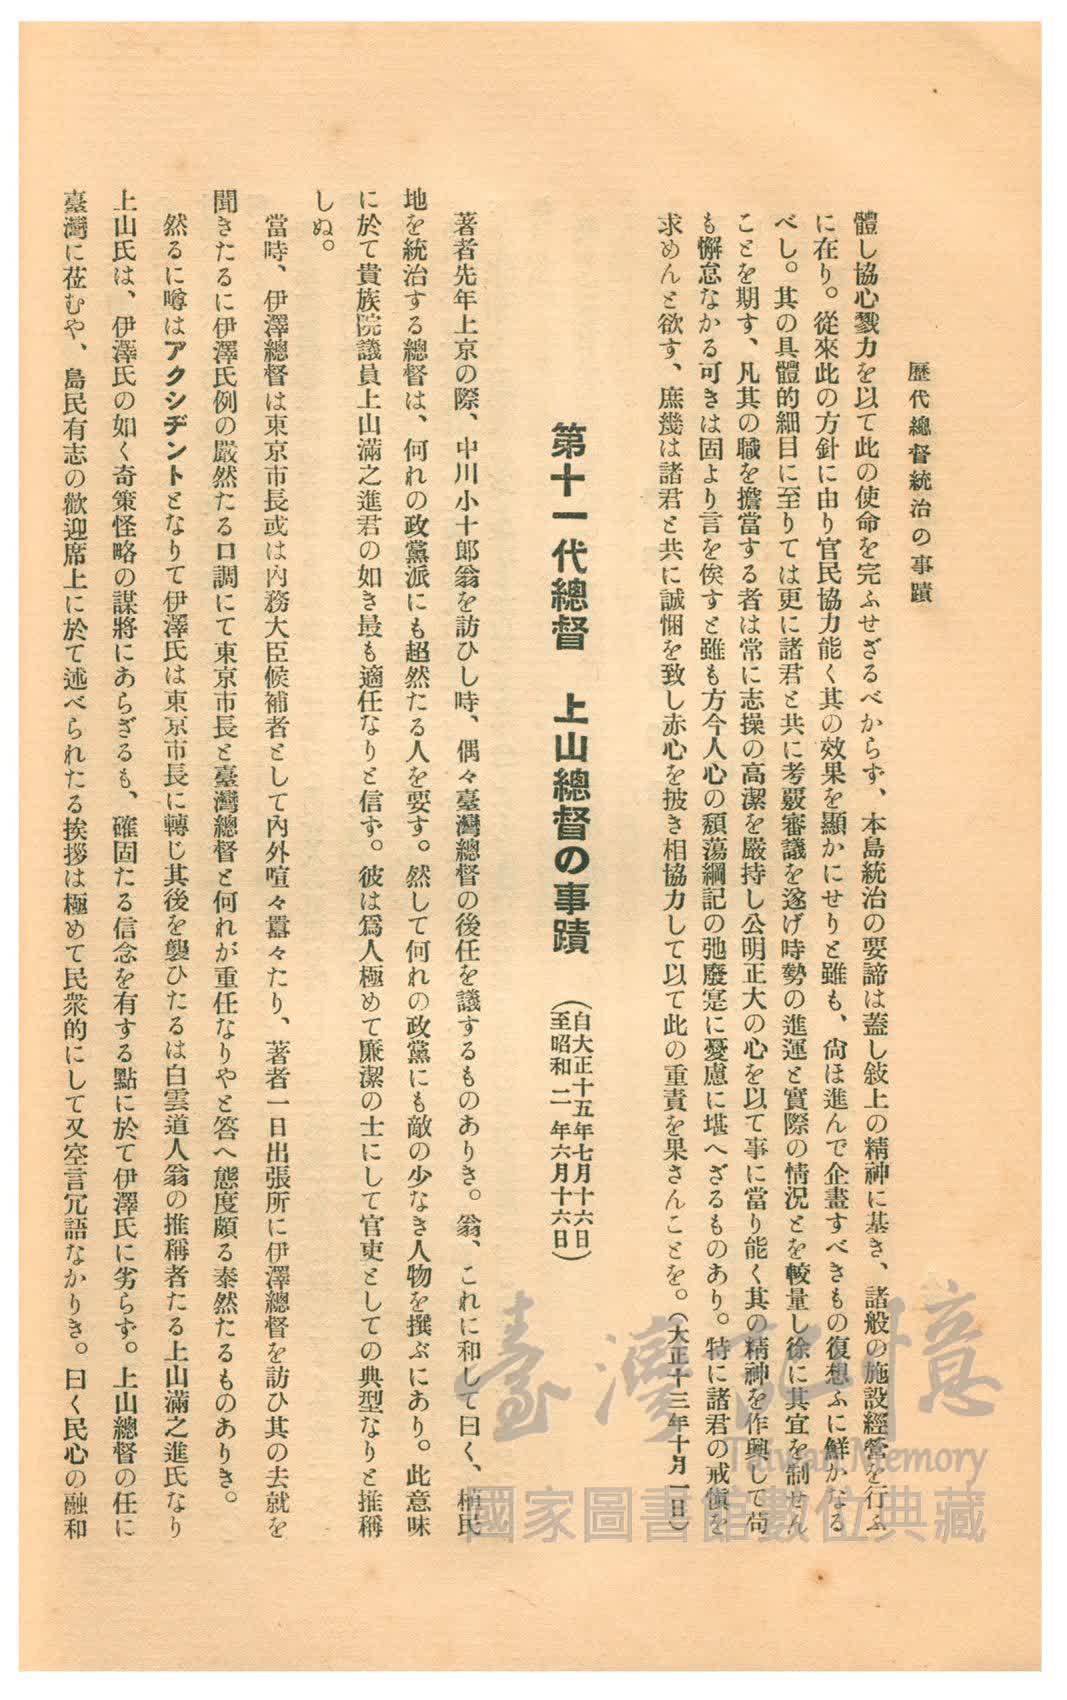 歷代總督統治の事蹟
體し協心戮力を以て此の使命を完ふせざるべからず、本島統治の要諦は蓋し敍上の精神に基き、諸般の施設經營を行ふ
に在り。從來此の方針に由り官民協力能く其の效果を顯かにせりと雖も、尙ほ進んで企畫すべきもの復想ふに鮮かなる
べし。其の具體的細目に至りては更に諸君と共に考覈審議を遂げ時勢の進運と實際の情況とを較量し徐に其宜を制せん
ことを期す、凡其の職を擔當する者は常に志操の高潔を嚴持し公明正大の心を以て事に當り能く其の精神を作興して苟
も懈怠なかる可きは固より言を俟すと雖も方今人心の頽蕩綱記の弛廢寔に憂慮に堪へざるものあり。特に諸君の戒愼を
求めんと欲す、庶幾は諸君と共に誠悃を致し赤心を披き相協力して以て此の重責を果さんことを。(大正十三年十月一日)
第十一代總督 上山總督の事蹟
(自大正十五年七月十六日)
(至昭和二年六月十六日)
著者先年上京の際、中川小十郎翁を訪ひし時、偶々臺灣總督の後任を議するものありき。翁、これに和して曰く、植民
地を統治する總督は、何れの政黨派にも超然たる人を要す。然して何れの政黨にも敵の少なき人物を撰ぶにあり。此意味
に於て貴族院議員上山滿之進君の如き最も適任なりと信ず。彼は爲人極めて廉潔の士にして官吏としての典型なりと推稱
しぬ。
當時、伊澤總督は東京市長或は內務大臣候補者として內外喧々囂々たり、著者一日出張所に伊澤總督を訪ひ其の去就を
聞きたるに伊澤氏例の嚴然たる口調にて東京市長と臺灣總督と何れが重任なりやと答へ態度頗る泰然たるものありき。
然るに噂はアクシヂントとなりて伊澤氏は東京市長に轉じ其後を襲ひたるは白雲道人翁の推稱者たる上山滿之進氏なり
上山氏は、伊澤氏の如く奇策怪略の謀將にあらざるも、確固たる信念を有する點に於て伊澤氏に劣らず。上山總督の任に
臺灣に莅むや、島民有志の歡迎席上に於て述べられたる挨拶は極めて民衆的にして又空言冗語なかりき。曰く民心の融和
臺灣記憶
Taiwan Memory
國家圖書館數位典藏